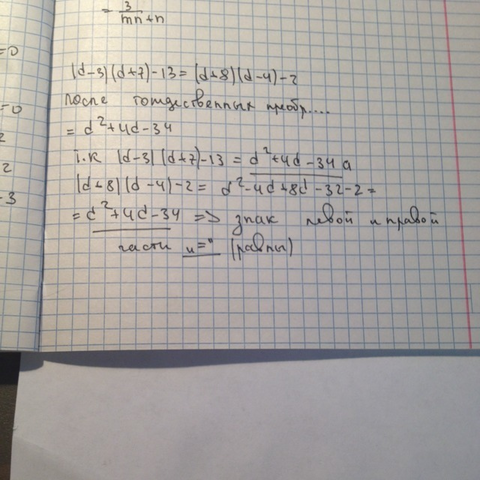 = 3/(mn+n)
=0
(d-3)(d+7)-13=(d+8)(d-4)-2
После тождественных преобр....
=0
= d²+4d-34
2
т.к (d-3)(d+7)-13 = d²+4d-34 а
2
(d+8)(d-4)-2= d²-4d+8d-32-2=
-3
= d²+4d-34 => знак левой и правой
части "=" (равны)